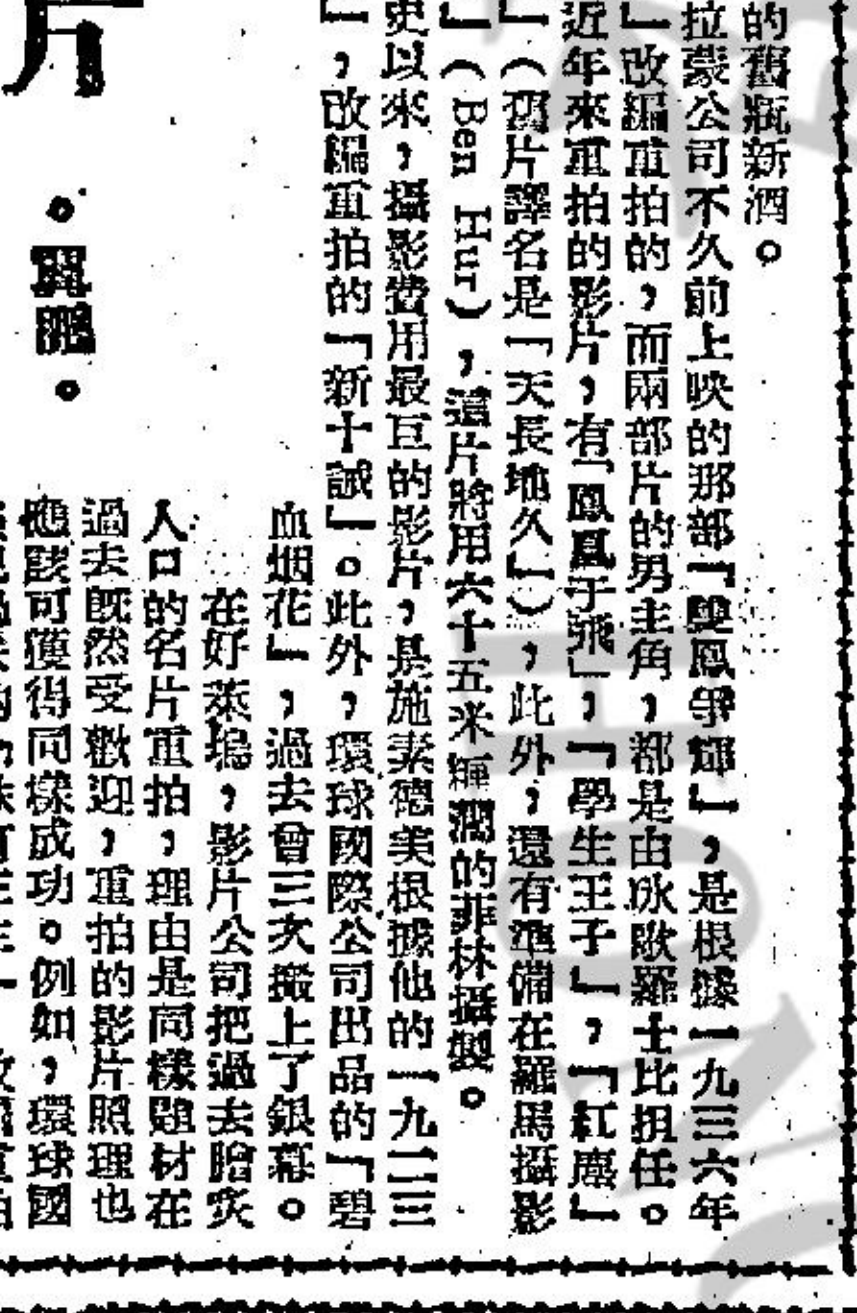 的舊瓶新酒。
拉蒙公司不久前上映的那部「雙鳳爭輝」，是根據一九三六年
」改編重拍的，而兩部片的男主角，都是由冰歌羅士比担任。
近年來重拍的影片，有「鳳凰于飛」，「學生王子」，「紅塵」
（舊片譯名是「天長地久」），此外，還有準備在羅馬攝影
」（Ben Hur），這片將用六十五米輝濶的菲林攝製。
史以來，攝影費用最巨的影片，是施素德美根據他的一九二三
」，改編重拍的「新十誡」。此外，環球國際公司出品的「碧
血烟花」，過去曾三次搬上了銀幕。
在好萊塢，影片公司把過去膾炙
人口的名片重拍，理由是同樣題材在
過去旣然受歡迎，重拍的影片照理也
應該可獲得同樣成功。例如，環球國
片